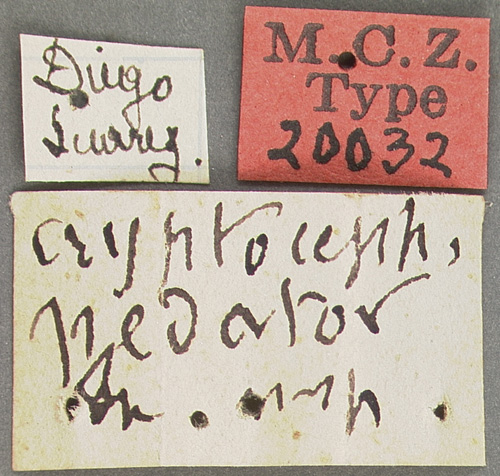 Diego
Suarez.
M.C.Z.
Type
20032
cryptoceph.
pedator